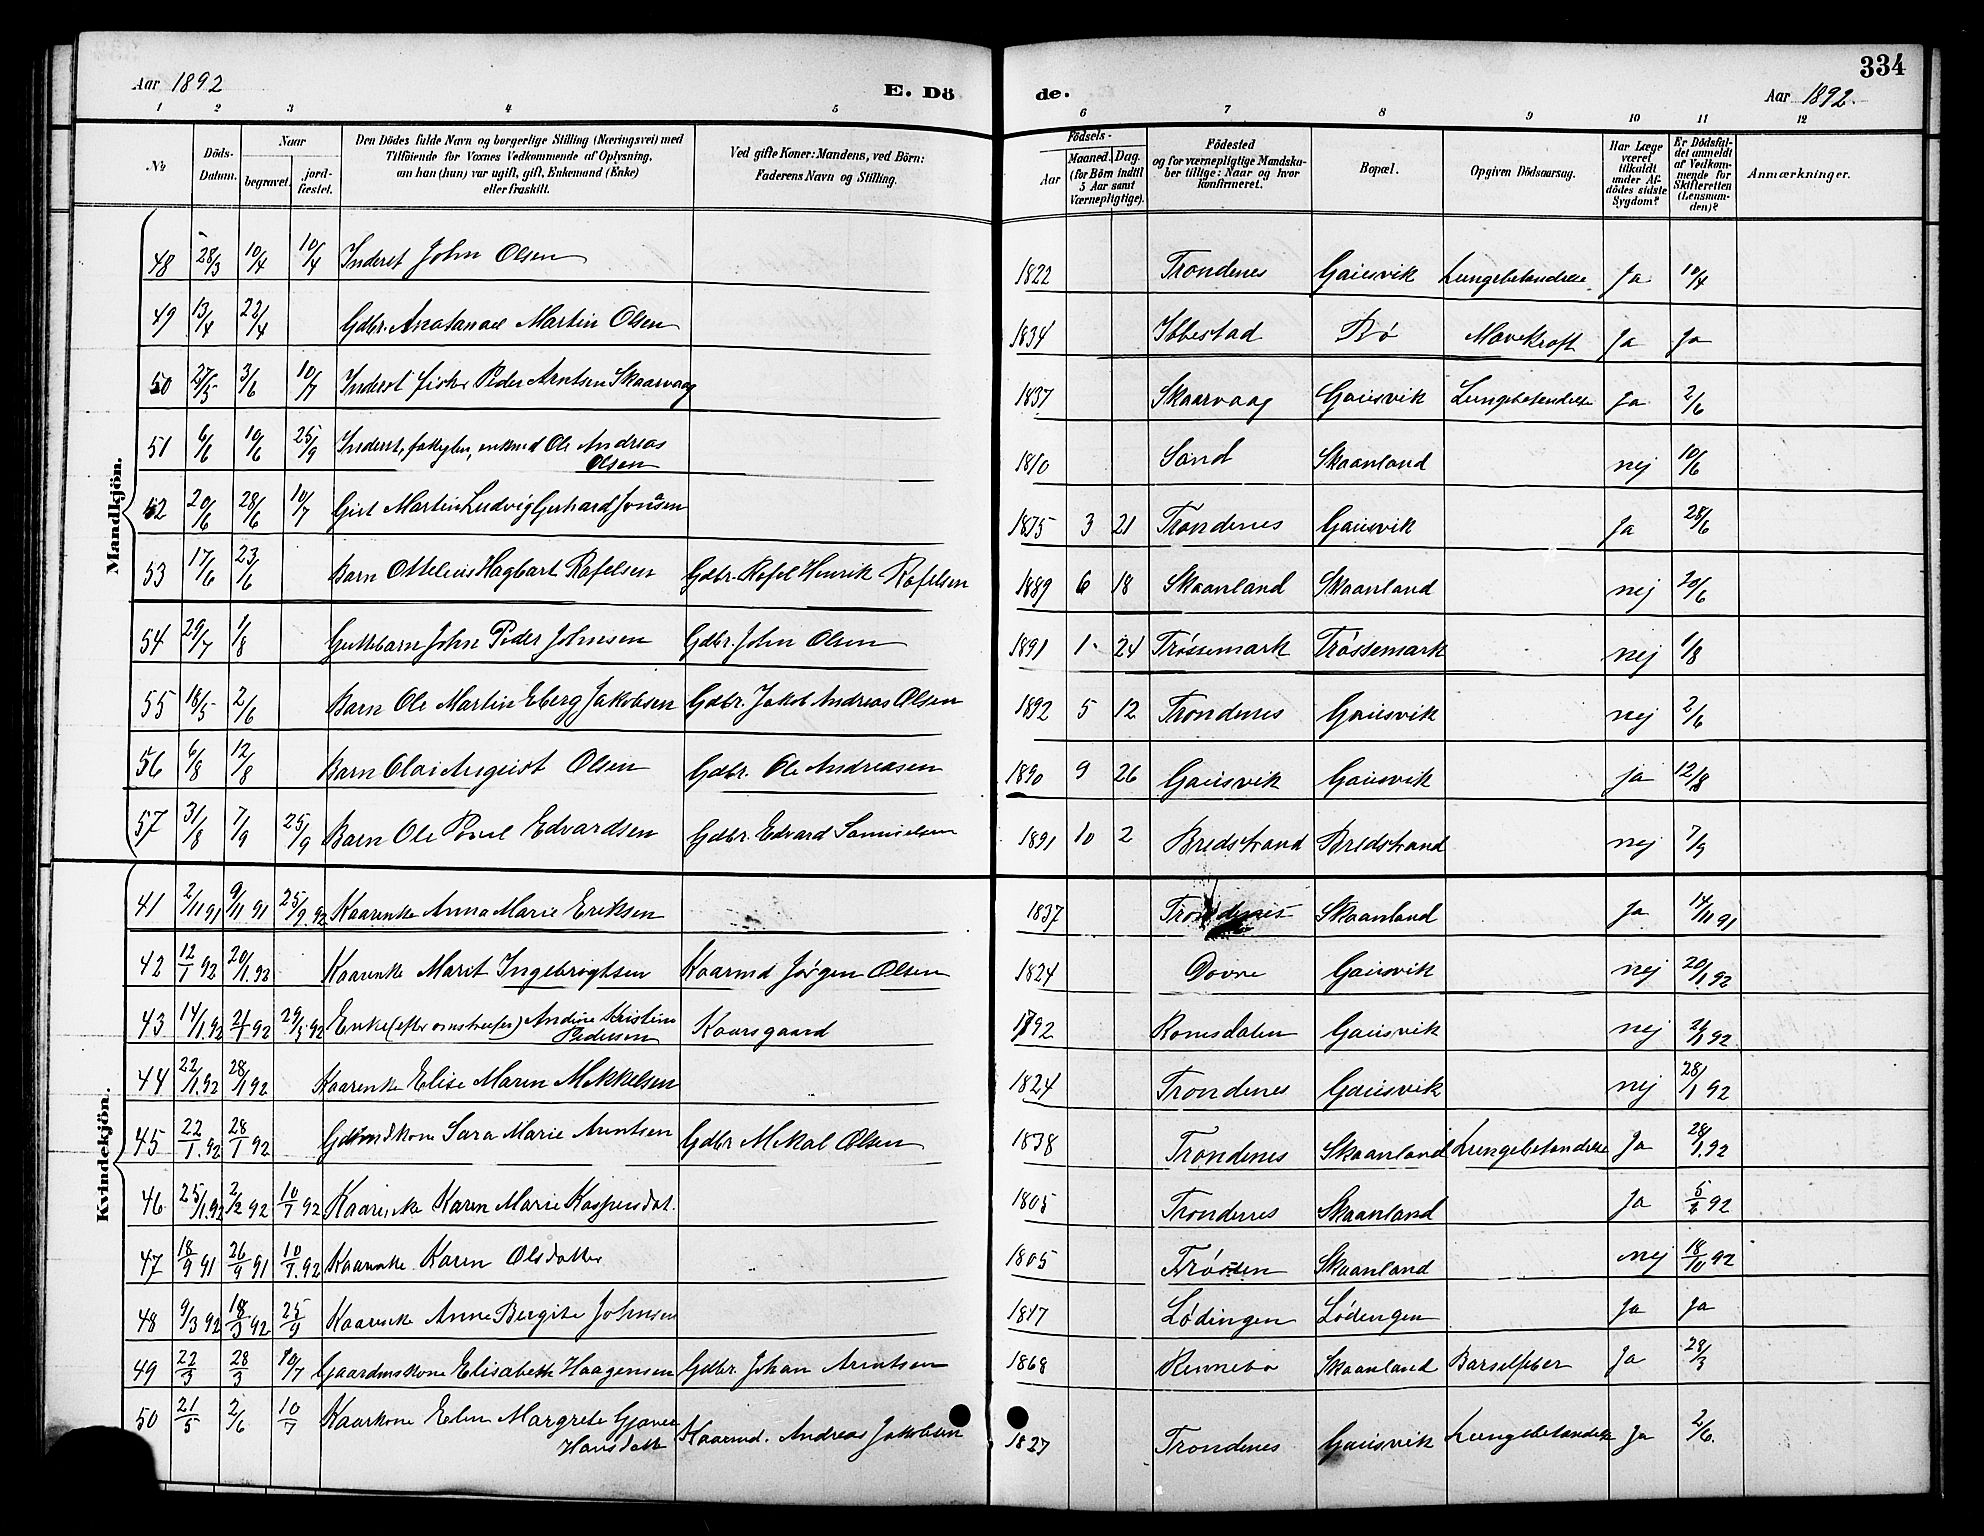 334
Aar 1892 E. Dö de. Aar 1892.
1 2 3 4 5 6 7 8 9 10 11 12
Nr. Döds-Datum. Naar begravet. jord-fæstet. Den Dödes fulde Navn og borgerlige Stilling (Næringsvei) med Tilföiende for Voxnes Vedkommende af Oplysning, om han (hun) var ugift, gift, Enkemand (Enke) eller fraskilt. Ved gifte Koner: Mandens, ved Börn: Faderens Navn og Stilling. Födsels- Aar Maaned. Dag. (for Börn indtil 5 Aar samt Værnepligtige). Födested og for værnepligtige Mandskaber tillige: Naar og hvor konfirmeret. Bopæl. Opgiven Dödsaarsag. Har Læge været tilkaldt under Afdödes sidste Sygdom? Er Dödsfaldet anmeldt af Vedkommende for Skifteretten (Lensmanden)? Anmærkninger.
Mandkjön.
48 28/3 10/4 10/4 Inderst John Olsen 1822 Trondenes Gausvik Lungebetendelse Ja 10/4
49 13/4 22/4 Gdbr. Martin Olsen 1834 Ibbestad Bø Mavekræft Ja Ja
50 27/5 3/6 10/7 Inderst fisker Peder Arntsen Skaarvaag 1837 Skaarvaag Gausvik Lungebetendelse Ja 2/6
51 6/6 10/6 25/9 Inderst, enkmd Ole Andreas Olsen 1810 Sand Skaanland nej 10/6
52 20/6 28/6 10/7 Martin Ludvig Gerhard Jonasen 1875 3 21 Trondenes Gausvik Ja 28/6
53 17/6 23/6 Barn Ottelius Hagbart Rafelsen Gdbr. Rafel Henrik Rafelsen 1889 6 18 Skaanland Skaanland nej 20/6
54 29/7 1/8 Guttebarn John Peder Johnsen Gdbr. John Olsen 1891 1 24 Trøssemark Trøssemark nej 1/8
55 18/5 2/6 Barn Ole Martin Eberg Jakobsen Gdbr. Jakob Andreas Olsen 1892 5 12 Trondenes Gausvik nej 2/6
56 6/8 12/8 Barn Olai Olsen Gdbr. Ole Andreasen 1890 9 26 Gausvik Gausvik ja 12/8
57 31/8 7/9 25/9 Barn Ole Poul Edvardsen Gdbr. Edvard Samuelsen 1891 10 2 Bredstrand Bredstrand nej 7/9
Kvindekjön.
41 2/11 91 9/11 91 25/9.92 Kaarenke Anna Marie Eriksen 1837 Trondenes Skaanland Ja 14/11 91
42 12/1 92 20/1.92 Kaarenke Marit Ingebrigtsen Kaarmd Jørgen Olsen 1824 Dovre Gausvik nej 20/1 92
43 14/1.92 21/1 92 29/5 92 Enke Andine Kristine Pedersen Kaarsgaard 1792 Romsdalen Gausvik nej 21/1 92
44 22/1.92 28/1 92 Kaarenke Elise Maren Mikkelsen 1824 Trondenes Gausvik nej 28/1 92
45 22/1.92 28/1 92 Gdmdskone Sara Marie Arntsen Gdbr Mikal Olsen 1838 Trondenes Skaanland Lungebetendelse Ja 28/1.92
46 25/1.92 2/2 92 10/7 92 Kaarenke Karen Marie Kaspersdat. 1805 Trondenes Skaanland Ja 5/2 92
47 18/9 91 26/9 91 10/7.92 Kaarenke Karen Olsdatter 1805 Trøssen Skaanland nej 18/10 92
48 9/3 92 18/3 92 25/9 Kaarenke Anne Bergite Johnsen 1817 Lødingen Lødingen Ja Ja
49 22/3 28/3 10/7 Gaardmskone Elisabeth Haagensen Gdbr. Johan Arntsen 1868 Rennebo Skaanland Barselfeber Ja 28/3
50 21/5 2/6 10/7 Kaarkone Elen Margrete Gjæver Hansdatt Kaarmd. Andreas Jakobsen 1827 Trondenes Gausvik Lungebetendelse Ja 2/6.